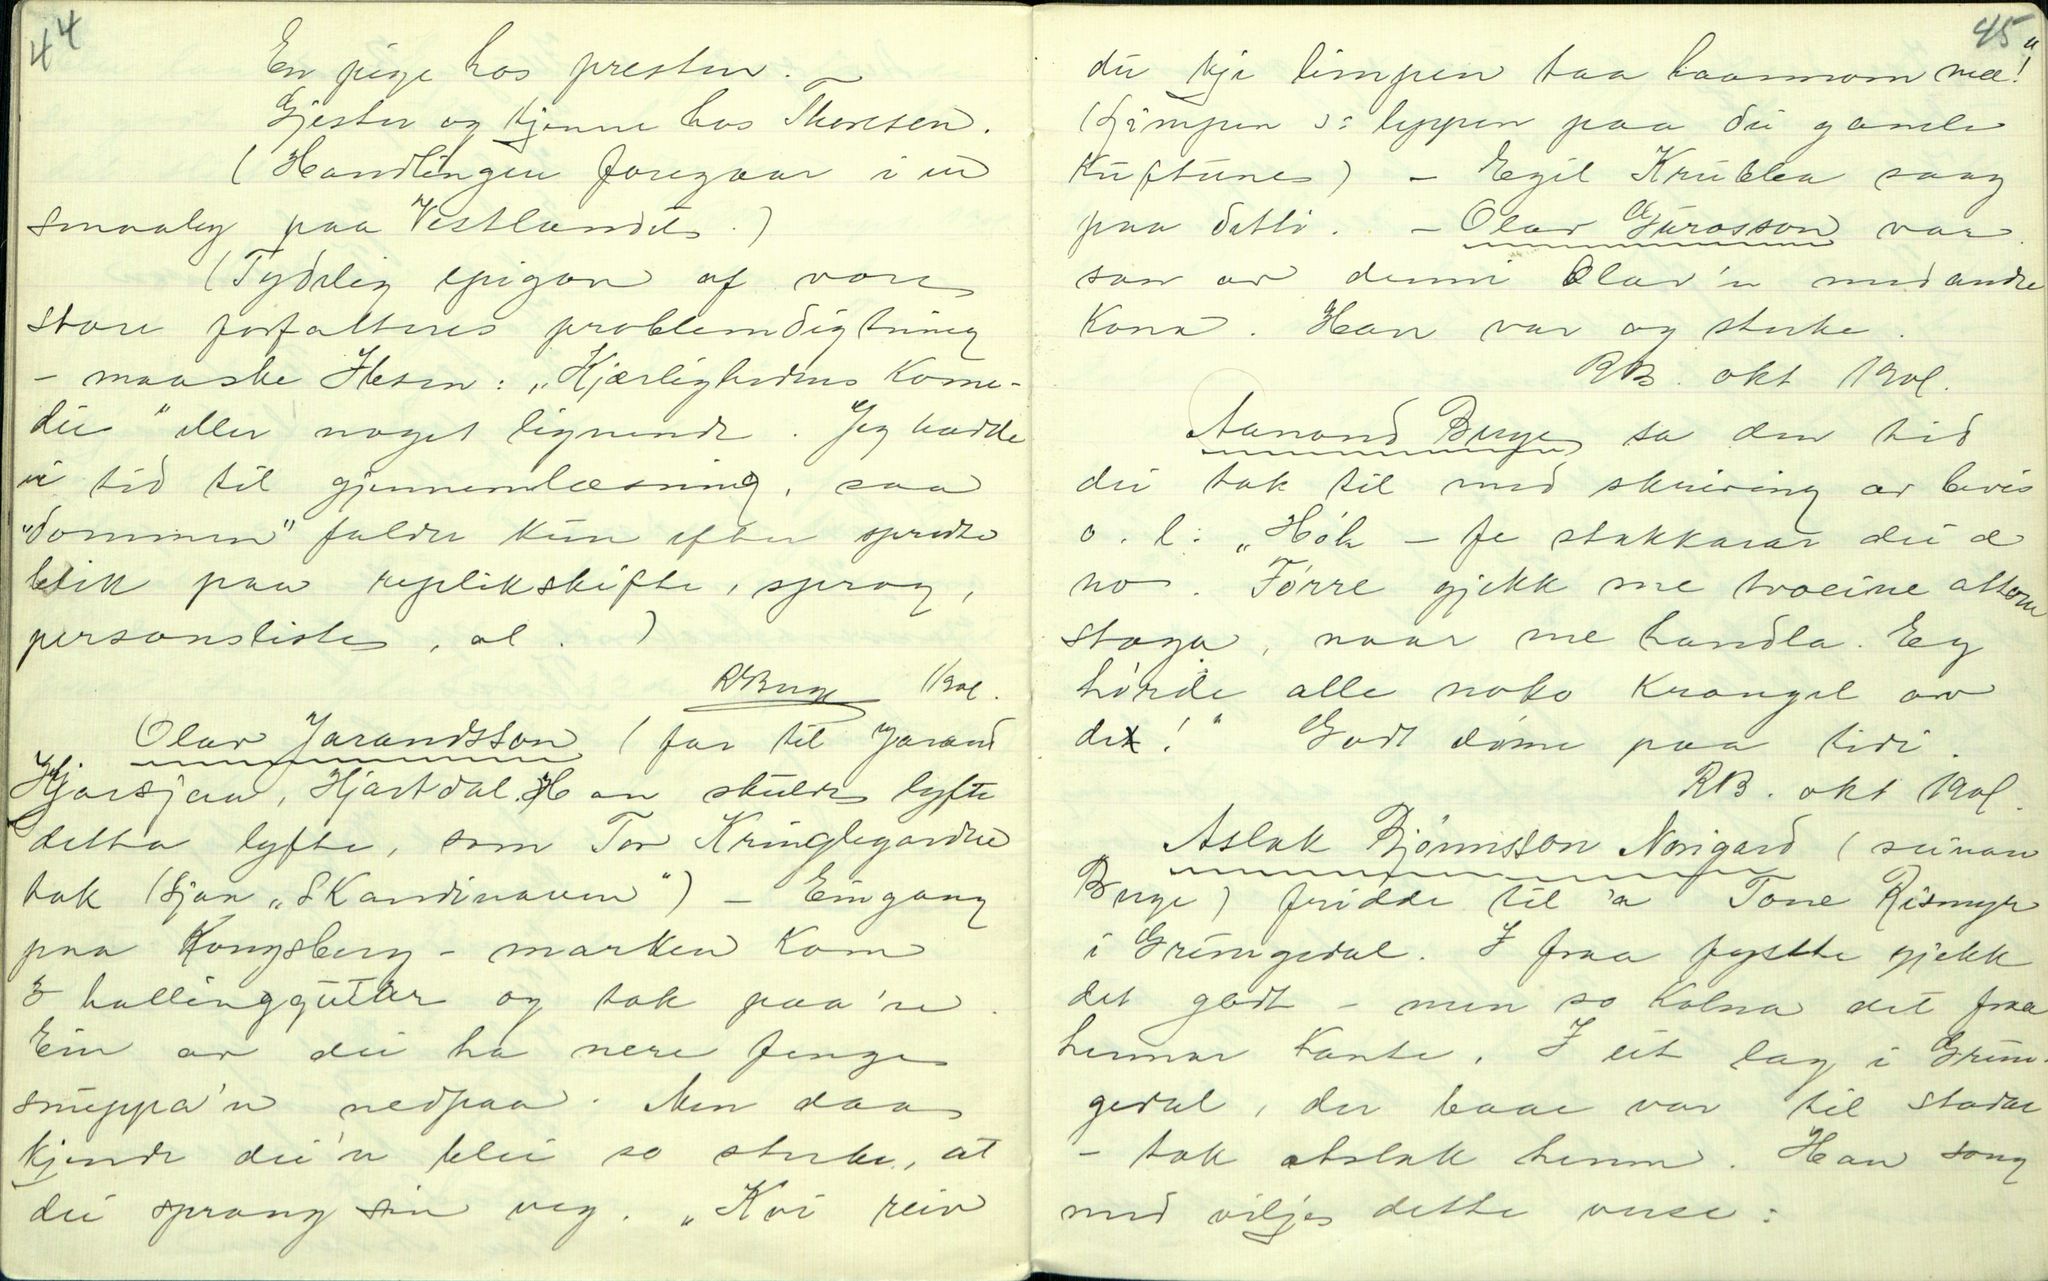 44
En pige hos presten.
Gjester og kjenne hos Thoresen.
(Handlingen foregaar i en
smaaby paa Vestlandet.)
(Tydelig epigon af vore
store forfatteres problemdigtning
- maaske Ibsen: "Kjærlighedens Kome-
die" eller noget lignende. Jeg hadde
ei tid til gjennemlæsning, saa
"dommen" falder kun efter spredte
blik paa replikskifte, sprog,
personliste, ol.)
RBerge 1901.
Olav Jarandsson (far til Jarand
Hjarsjaa, Hjartdal. Han skulde lyfte
detta lyfte, som Tor Kringlegarden
tok (Sjaa "Skandinaven") - Ein gang
paa Kongsberg-marken kom
3 hallinggutar og tok paa'n.
Ein av dei ha nere fenge
snuppa'n nedpaa. Men daa
kjende dei'n blei so sterke, at
dei sprang sin veg. "Kvi reiv
45
du kje limpen taa haanom mæ!"
(Limpen ɔ: leppen paa dei gamle
kuftune) - Egil Krublea saag
paa dette. - Olav Gurosson var
son av denne Olav'n med andre
kona. Han var og sterke.
RB. okt 1901.
Aanond Berge sa den tid
dei tok til med skriving av bevis
o. l: "Høh - fe stakkarar dei æ
no. Førre gjekk me tvoeine attom
stoga, naar me handla. Eg
hørde alle noko krangel av
det!" Godt døme paa tidi.
RB. okt 1901.
Aslak Bjørnsson Norigard (seinare
Berge) fridde til 'a Tone Rismyr
i Grungedal. I fraa fyste gjekk
det godt - men so kolna det fraa
hennar kante. I eit lag i Grun-
gedal, der baae var til stadar
- tok Aslak henne. Han song
med viljes dette verse: